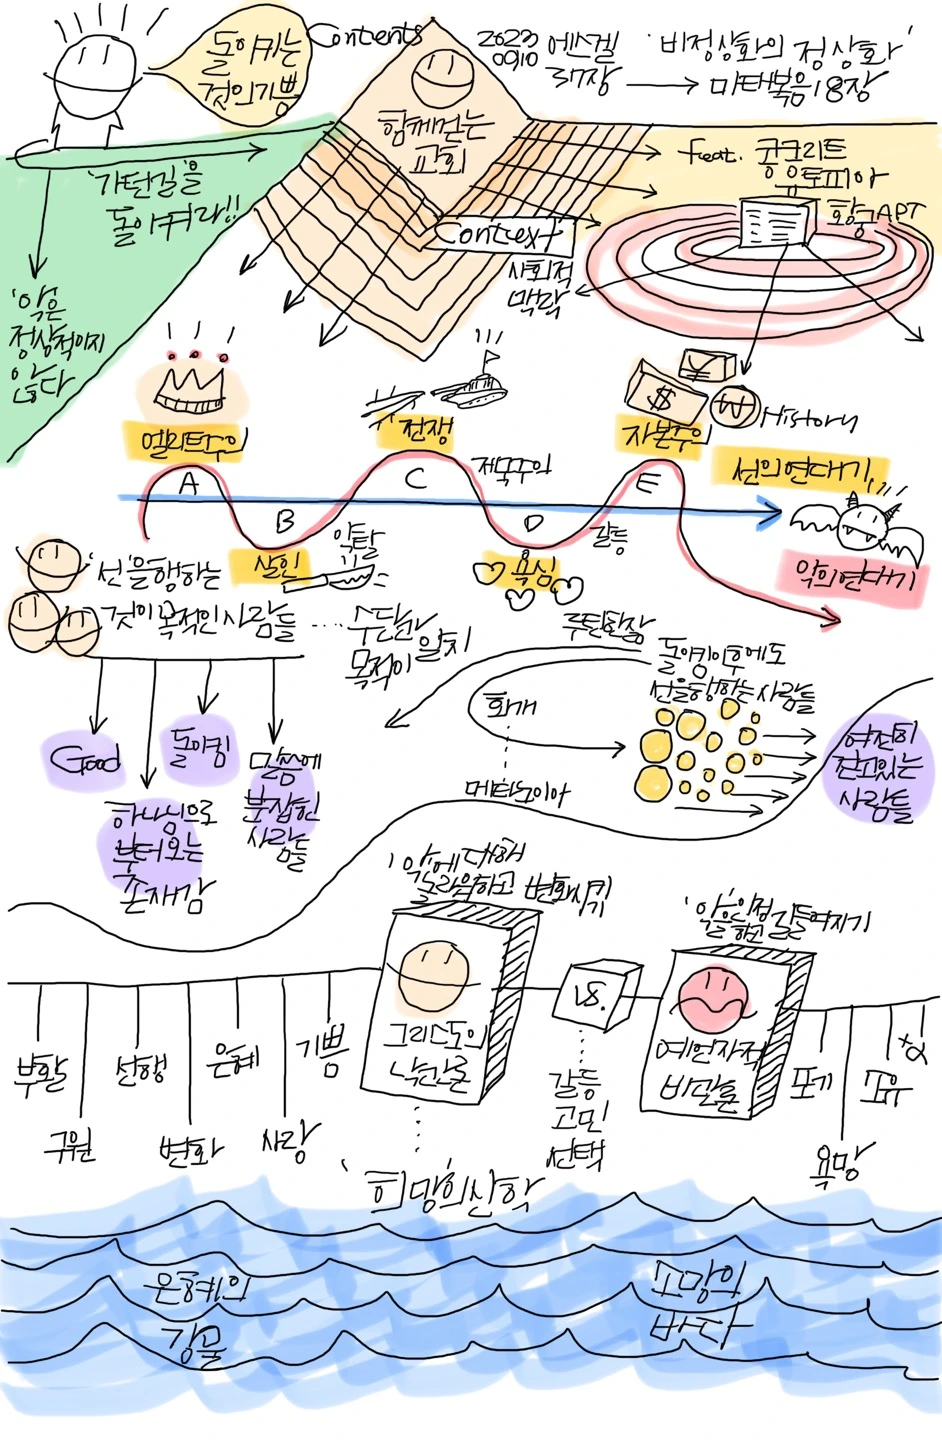 돌이키는
것의 기쁨
Contents
함께걷는
교회
2023
0910
에스겔
37장
'비정상화의 정상화'
마태복음 18장
'가던길'을
돌이켜라!!
'악'은
정상적이지
않다
feat. 콘크리트
유토피아
황궁APT
Context
사회적
맥락
엘리트주의
전쟁
제국주의
자본주의
$
₩
History
A
B
C
D
E
선의 연대기
악의 연대기
살인
약탈
욕심
갈등
'선'을 행하는
것이 목적인 사람들
수단과
목적이 일치
Good
하나님으로
부터오는
존재감
돌이킴
말씀에
붙잡힌
사람들
회개
메타노이아
돌이킴 이후에도
선을행하는 사람들
여전히
걷고있는
사람들
'악'에 대해
놀라워하고 변화시키기
그리스도의
낙관론
vs.
갈등
고민
선택
예언자적
비관론
부활
구원
선행
변화
은혜
사랑
기쁨
포기
욕망
조유
+α
'희망의신학'
은혜의
강물
소망의
바다